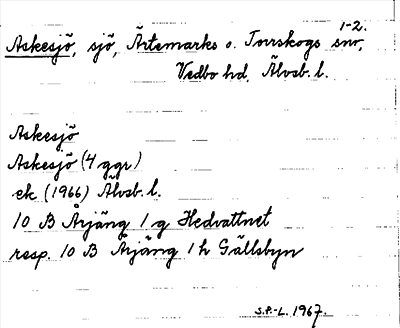 1-2.
Askesjö, sjö, Ärtemarks o. Torrskogs snr,
Vedbo hd, Älvsb. l.
Askesjö
Askesjö (4 ggr)
ek (1966) Älvsb. l.
10 B Årjäng 1 g Hedvattnet
resp. 10 B Årjäng 1 h Gällsbyn
S.P.-L. 1967.